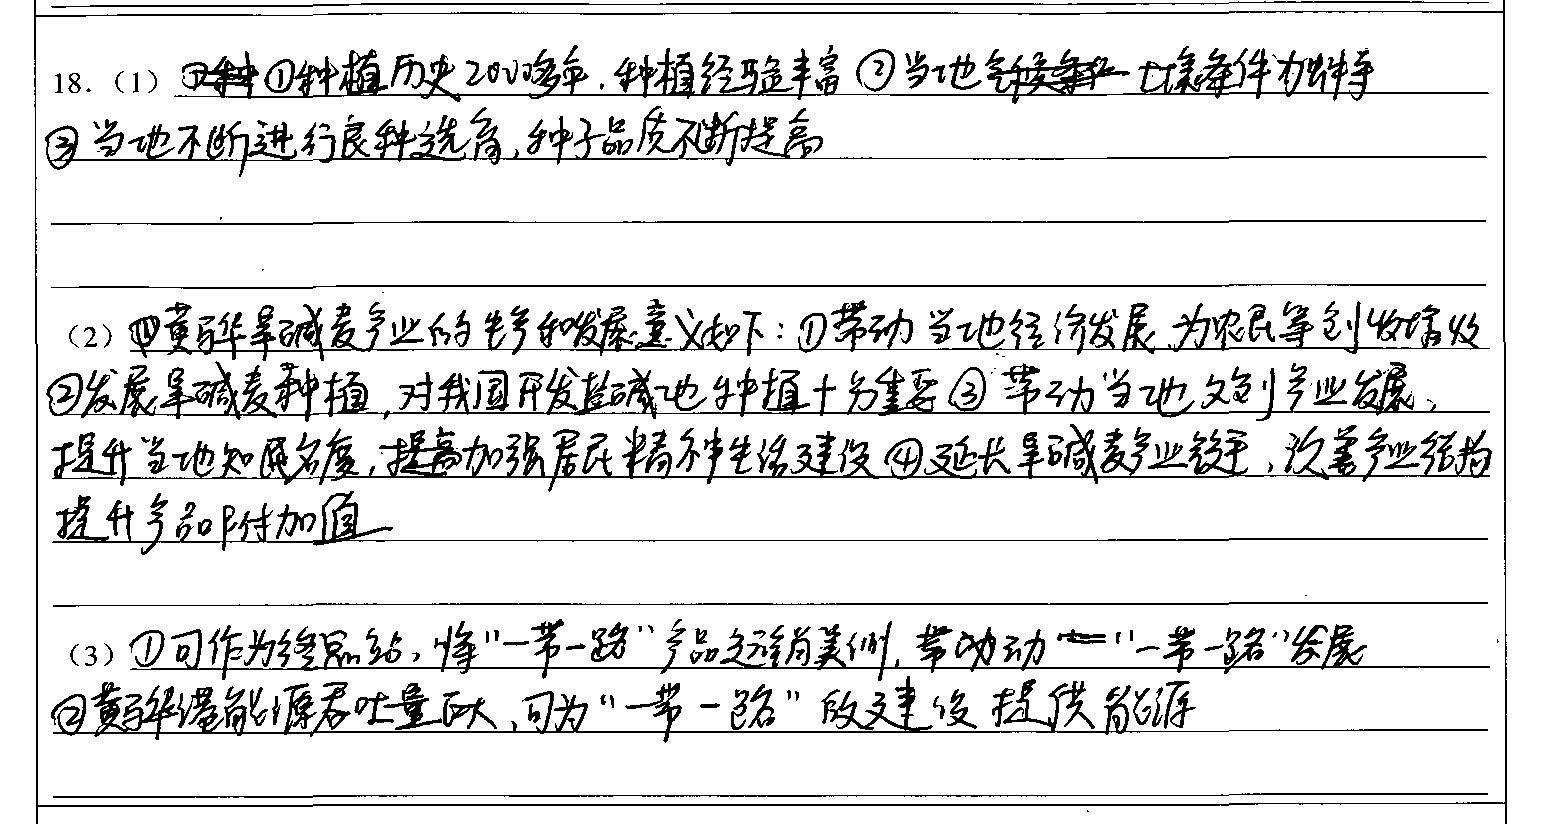 18.（1）①种植历史2000多年，种植经验丰富 ②当地土壤条件独特
③当地不断进行良种选育，种子品质不断提高
（2）黄骅旱碱麦产业的生产和发展意义如下：①带动当地经济发展，为农民等创收增收
②发展旱碱麦种植，对我国开发盐碱地种植十分重要③ 带动当地文创产业发展，
提升当地知名度，加强居民精神生活建设④延长旱碱麦产业链，改善产业结构
提升产品附加值
（3）①可作为终点站，将"一带一路"产品远销美洲，带动"一带一路"发展
②黄骅港能源吞吐量巨大，可为"一带一路"的建设提供能源